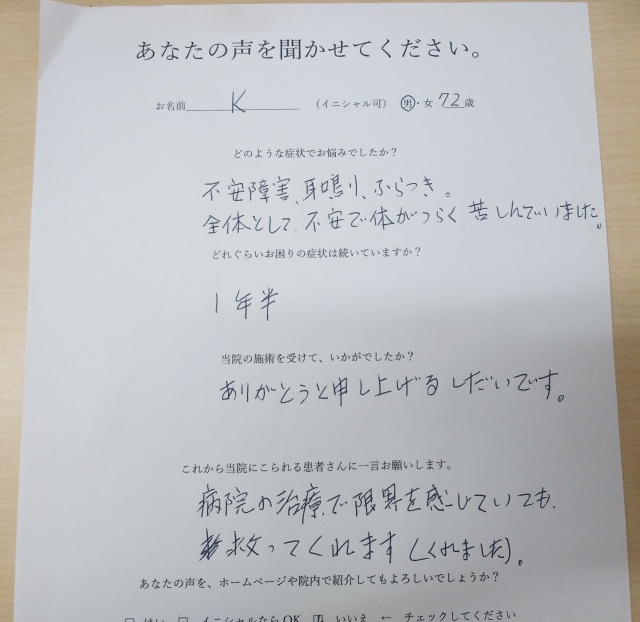 あなたの声を聞かせてください。
お名前 K （イニシャル可） 男・女 72歳
どのような症状でお悩みでしたか？
不安障害、耳鳴り、ふらつき。
全体として、不安で体がつらく、苦しんでいました。
どれぐらいお困りの症状は続いていますか？
1年半
当院の施術を受けて、いかがでしたか？
ありがとうと申し上げるしだいです。
これから当院にこられる患者さんに一言お願いします。
病院の治療で限界を感じていても、
救ってくれます（くれました）。
あなたの声を、ホームページや院内で紹介してもよろしいでしょうか？
□ はい □ イニシャルなら OK □ いいえ ← チェックしてください